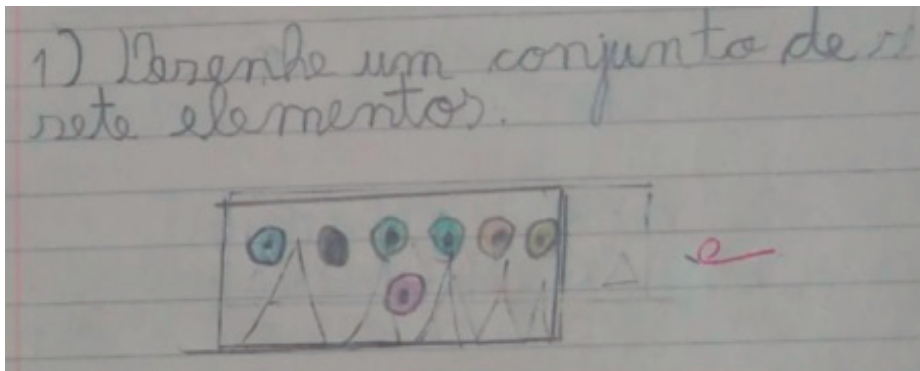 1) Desenhe um conjunto de
sete elementos.